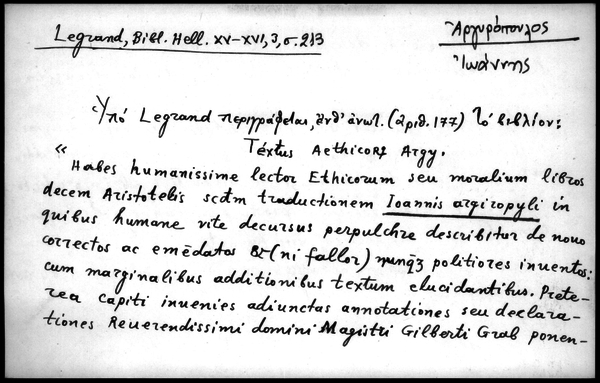 Legrand, Bibl. Hell. XV–XVI, 3, σ. 213
Ἀργυρόπουλος
Ἰωάννης
Ὑπό Legrand περιγράφεται, ἔνθ' ἀνωτ. (ἀριθ. 177) τό βιβλίον:
Téxtus Aethicorꝝ Argy.
« Habes humanissime lector Ethicorum seu moralium libros
decem Aristotelis scd̄m traductionem Ioannis argiropyli in
quibus humane vite decursus perpulchre describitur de nouo
correctos ac emēdatos &(ni fallor) nunq̃ȝ politiores inuentos:
cum marginalibus additionibus textum elucidantibus. Prete-
rea capiti inuenies adiunctas annotationes seu declara-
tiones Reuerendissimi domini Magistri Gilberti Grab ponen-